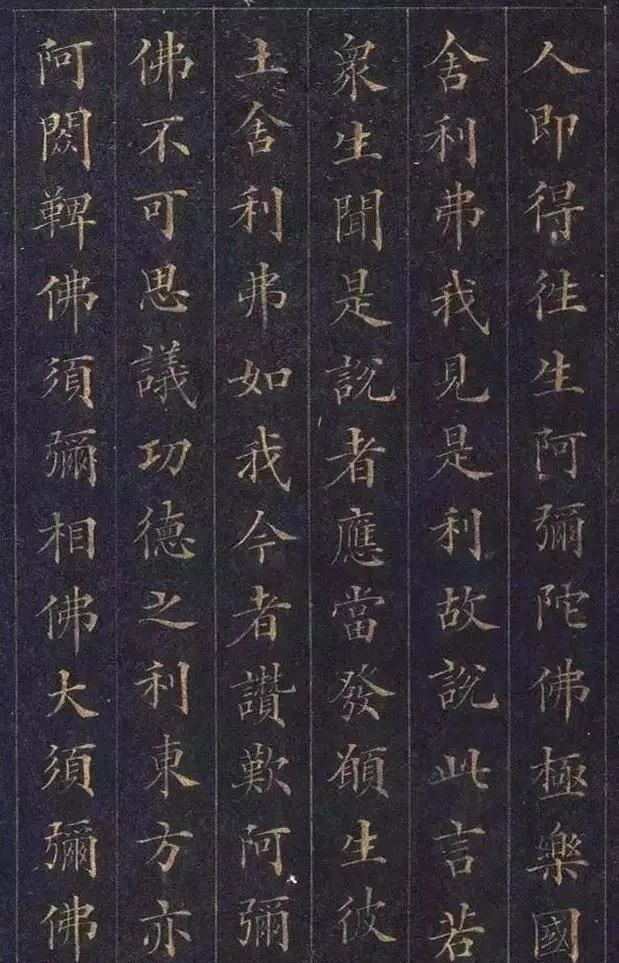 人即得徃生阿彌陀佛極樂國
舍利弗我見是利故說此言若
衆生聞是說者應當發願生彼
土舍利弗如我今者讚歎阿彌
佛不可思議功德之利東方亦
阿閦鞞佛須彌相佛大須彌佛